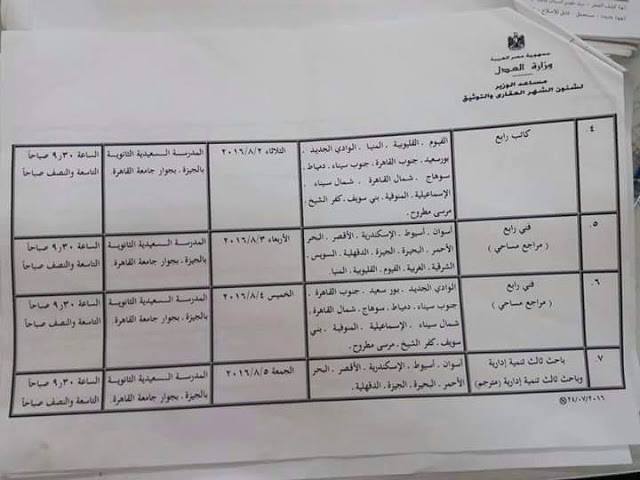 جمهورية مصر العربية
وزارة العدل
مساعد الوزير
لشئون الشهر العقارى والتوثيق
٤
كاتب رابع
الفيوم . القليوبية . المنيا . الوادي الجديد .
بورسعيد . جنوب القاهرة . جنوب سيناء . دمياط .
سوهاج . شمال القاهرة . شمال سيناء .
الإسماعيلية . المنوفية . بني سويف . كفر الشيخ .
مرسى مطروح .
الثلاثاء ٢٠١٦/٨/٢
المدرسة السعيدية الثانوية
بالجيزة . بجوار جامعة القاهرة .
الساعة ٩٫٣٠ صباحاً
التاسعة والنصف صباحاً
٥.
فني رابع
( مراجع مساحي )
أسوان . أسيوط . الإسكندرية . الأقصر . البحر
الأحمر . البحيرة . الجيزة . الدقهلية . السويس .
الشرقية . الغربية . الفيوم . القليوبية . المنيا .
الأربعاء ٢٠١٦/٨/٣
المدرسة السعيدية الثانوية
بالجيزة . بجوار جامعة القاهرة .
الساعة ٩٫٣٠ صباحاً
التاسعة والنصف صباحاً
٦.
فني رابع
( مراجع مساحي )
الوادي الجديد . بور سعيد . جنوب القاهرة .
جنوب سيناء . دمياط . سوهاج . شمال القاهرة .
شمال سيناء . الإسماعيلية . المنوفية . بني
سويف . كفر الشيخ . مرسى مطروح .
الخميس ٢٠١٦/٨/٤
المدرسة السعيدية الثانوية
بالجيزة . بجوار جامعة القاهرة .
الساعة ٩٫٣٠ صباحاً
التاسعة والنصف صباحاً
٧.
باحث ثالث تنمية إدارية
وباحث ثالث تنمية إدارية (مترجم)
أسوان . أسيوط . الإسكندرية . الأقصر . البحر
الأحمر . البحيرة . الجيزة . الدقهلية .
الجمعة ٢٠١٦/٨/٥
المدرسة السعيدية الثانوية
بالجيزة . بجوار جامعة القاهرة .
الساعة ٩٫٣٠ صباحاً
التاسعة والنصف صباحاً
٢٤/٠٧/٢٠١٦